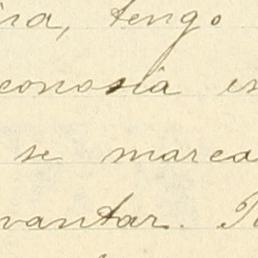 tengo
conosia
se marca
vantar.